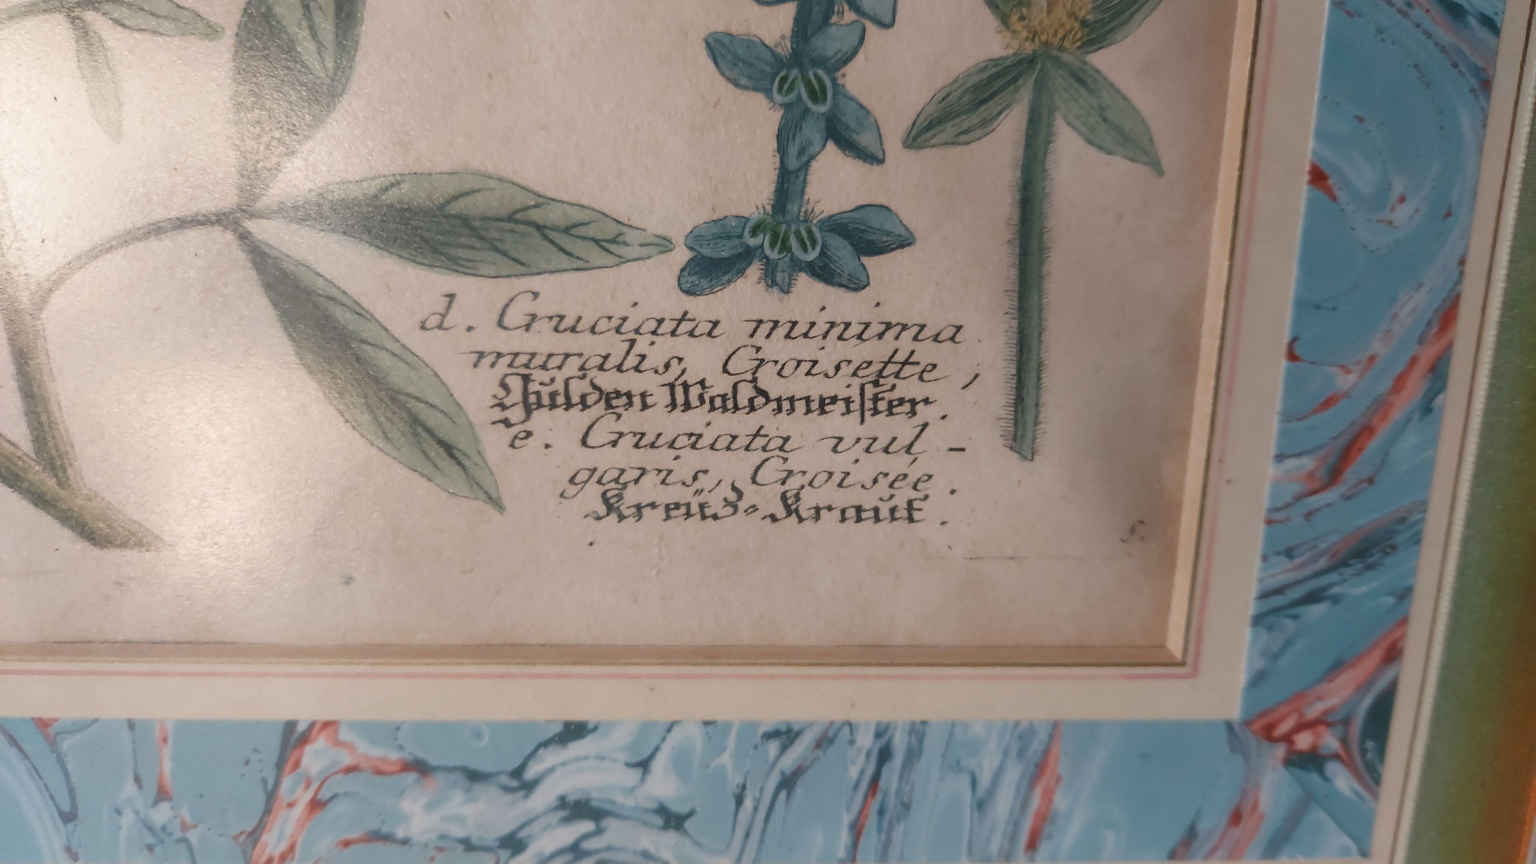 d. Cruciata minima
muralis, Croisette;
Gülden Waldmeister.
e. Cruciata vul-
garis, Croisée.
Kreüz-Kraut.
S.